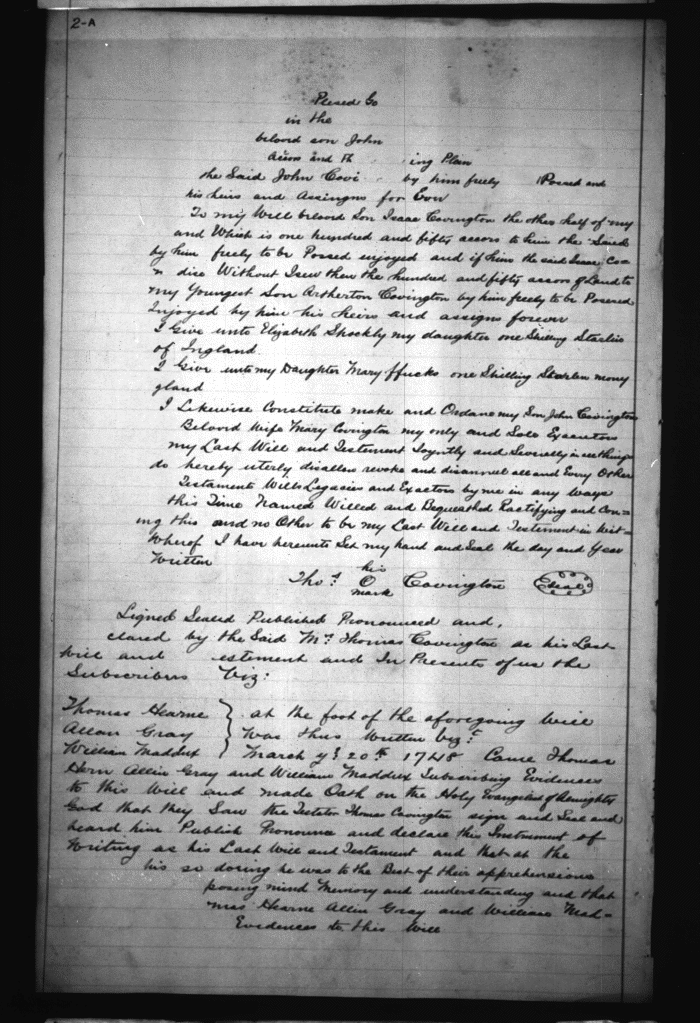 2-A
Posed Go
in the
beloved son John
Accors and Th ing Plan
the Said John Covi by him freely Possed and
his heirs and Assingns for Evor
To my Well beloved Son Isaac Covington the other half of my
and Which is one hundred and fifty accors to him the Said
by him freely to be Possed enjoyed and if him the said Isaac Co=
n dise Without Isew then the hundred and fifty accors of Land to
my Youngest Son Artherton Covington by him freely to be Posered
Injoyed by him his heirs and assigns forever
I Give unto Elizabeth Shockly my daughter one Shilling Starlin
of Ingland.
I Give unto my Daughter Mary ffucks one Shilling Starlen money
gland
I Likewise Constitute make and Ordane my Son John Covington
Beloved Wife Mary Covington my only and Sole Executors
my Last Will and Testament Joyntly and Severally in all things
do hereby uterly disallow revoke and disannull all and Every Other
Testaments Wills Legacies and Exactors by me in any Ways
this Time Named Willed and Bequeathed Ractifying and Con=
ing this and no Other to be my Last Will and Testement in Wit-
Wherof I have hereunto Set my hand and Seal the day and Year
Written
his
Thos. O Covington Seal
mark
Signed Sealed Published Pronounced and,
clared by the Said Mr. Thomas Covington as his Last
Will and estement and In Presents of us the
Subscribers Viz:
Thomas Hearne } at the foot of the aforegoing Will
Allan Gray Was thus Written Viz.t
William Maddux March ye 20th 1748 Came Thomas
Hern Allin Gray and William Maddux Subscribing Evidences
to this Will and made Oath on the Holy Evangelist of Almighty
God that they Saw the Testator Thomas Covington sign and Seal and
heard him Publish Pronounce and declare this Instrument of
Writing as his Last Will and Testament and that at the
his so doring he was to the Best of their apprehensions
posing mind Memory and understanding and that
mas Hearne Allin Gray and William Mad-
Evidences to this Will